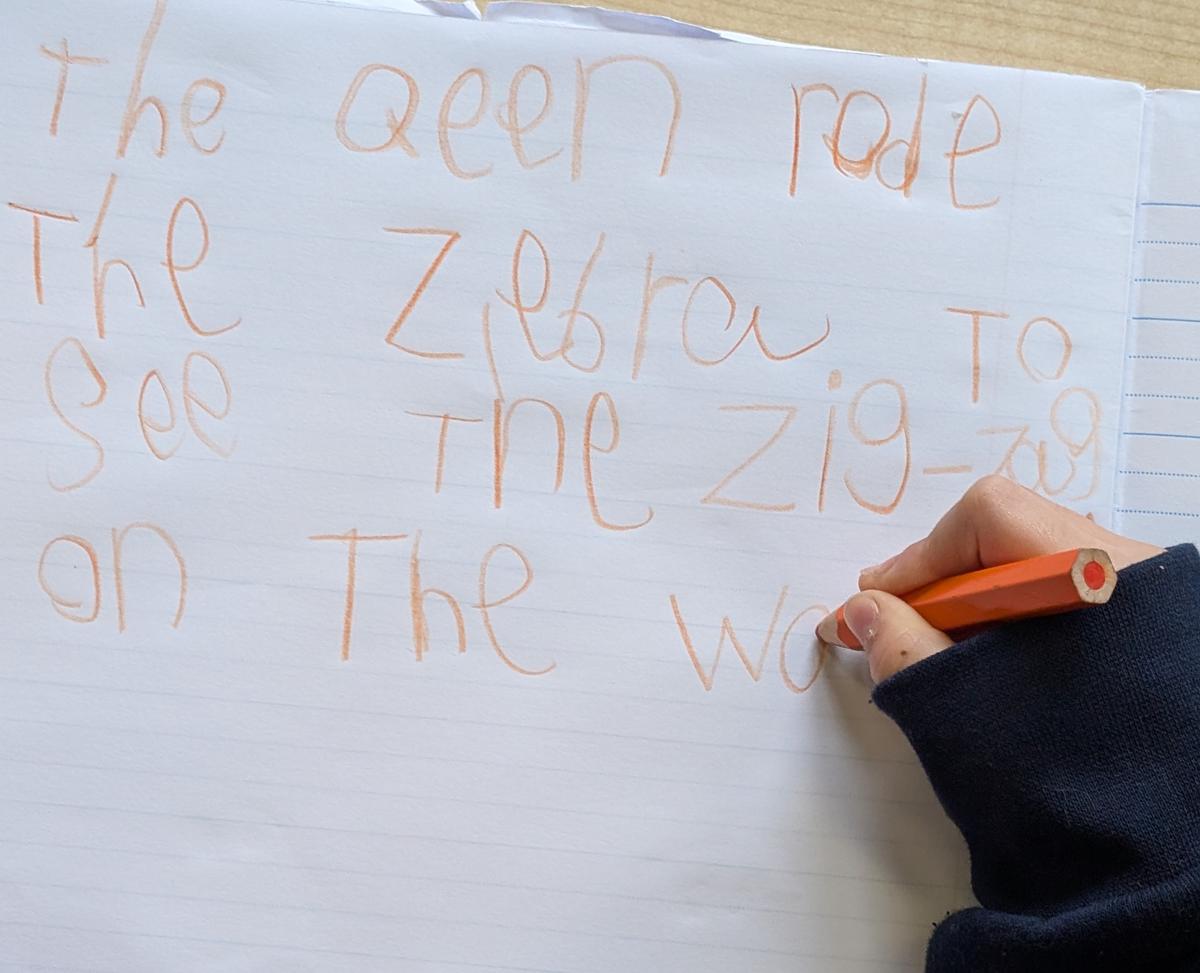 The Qeen rode
The Zebra To
See The zig-zag
on The wa